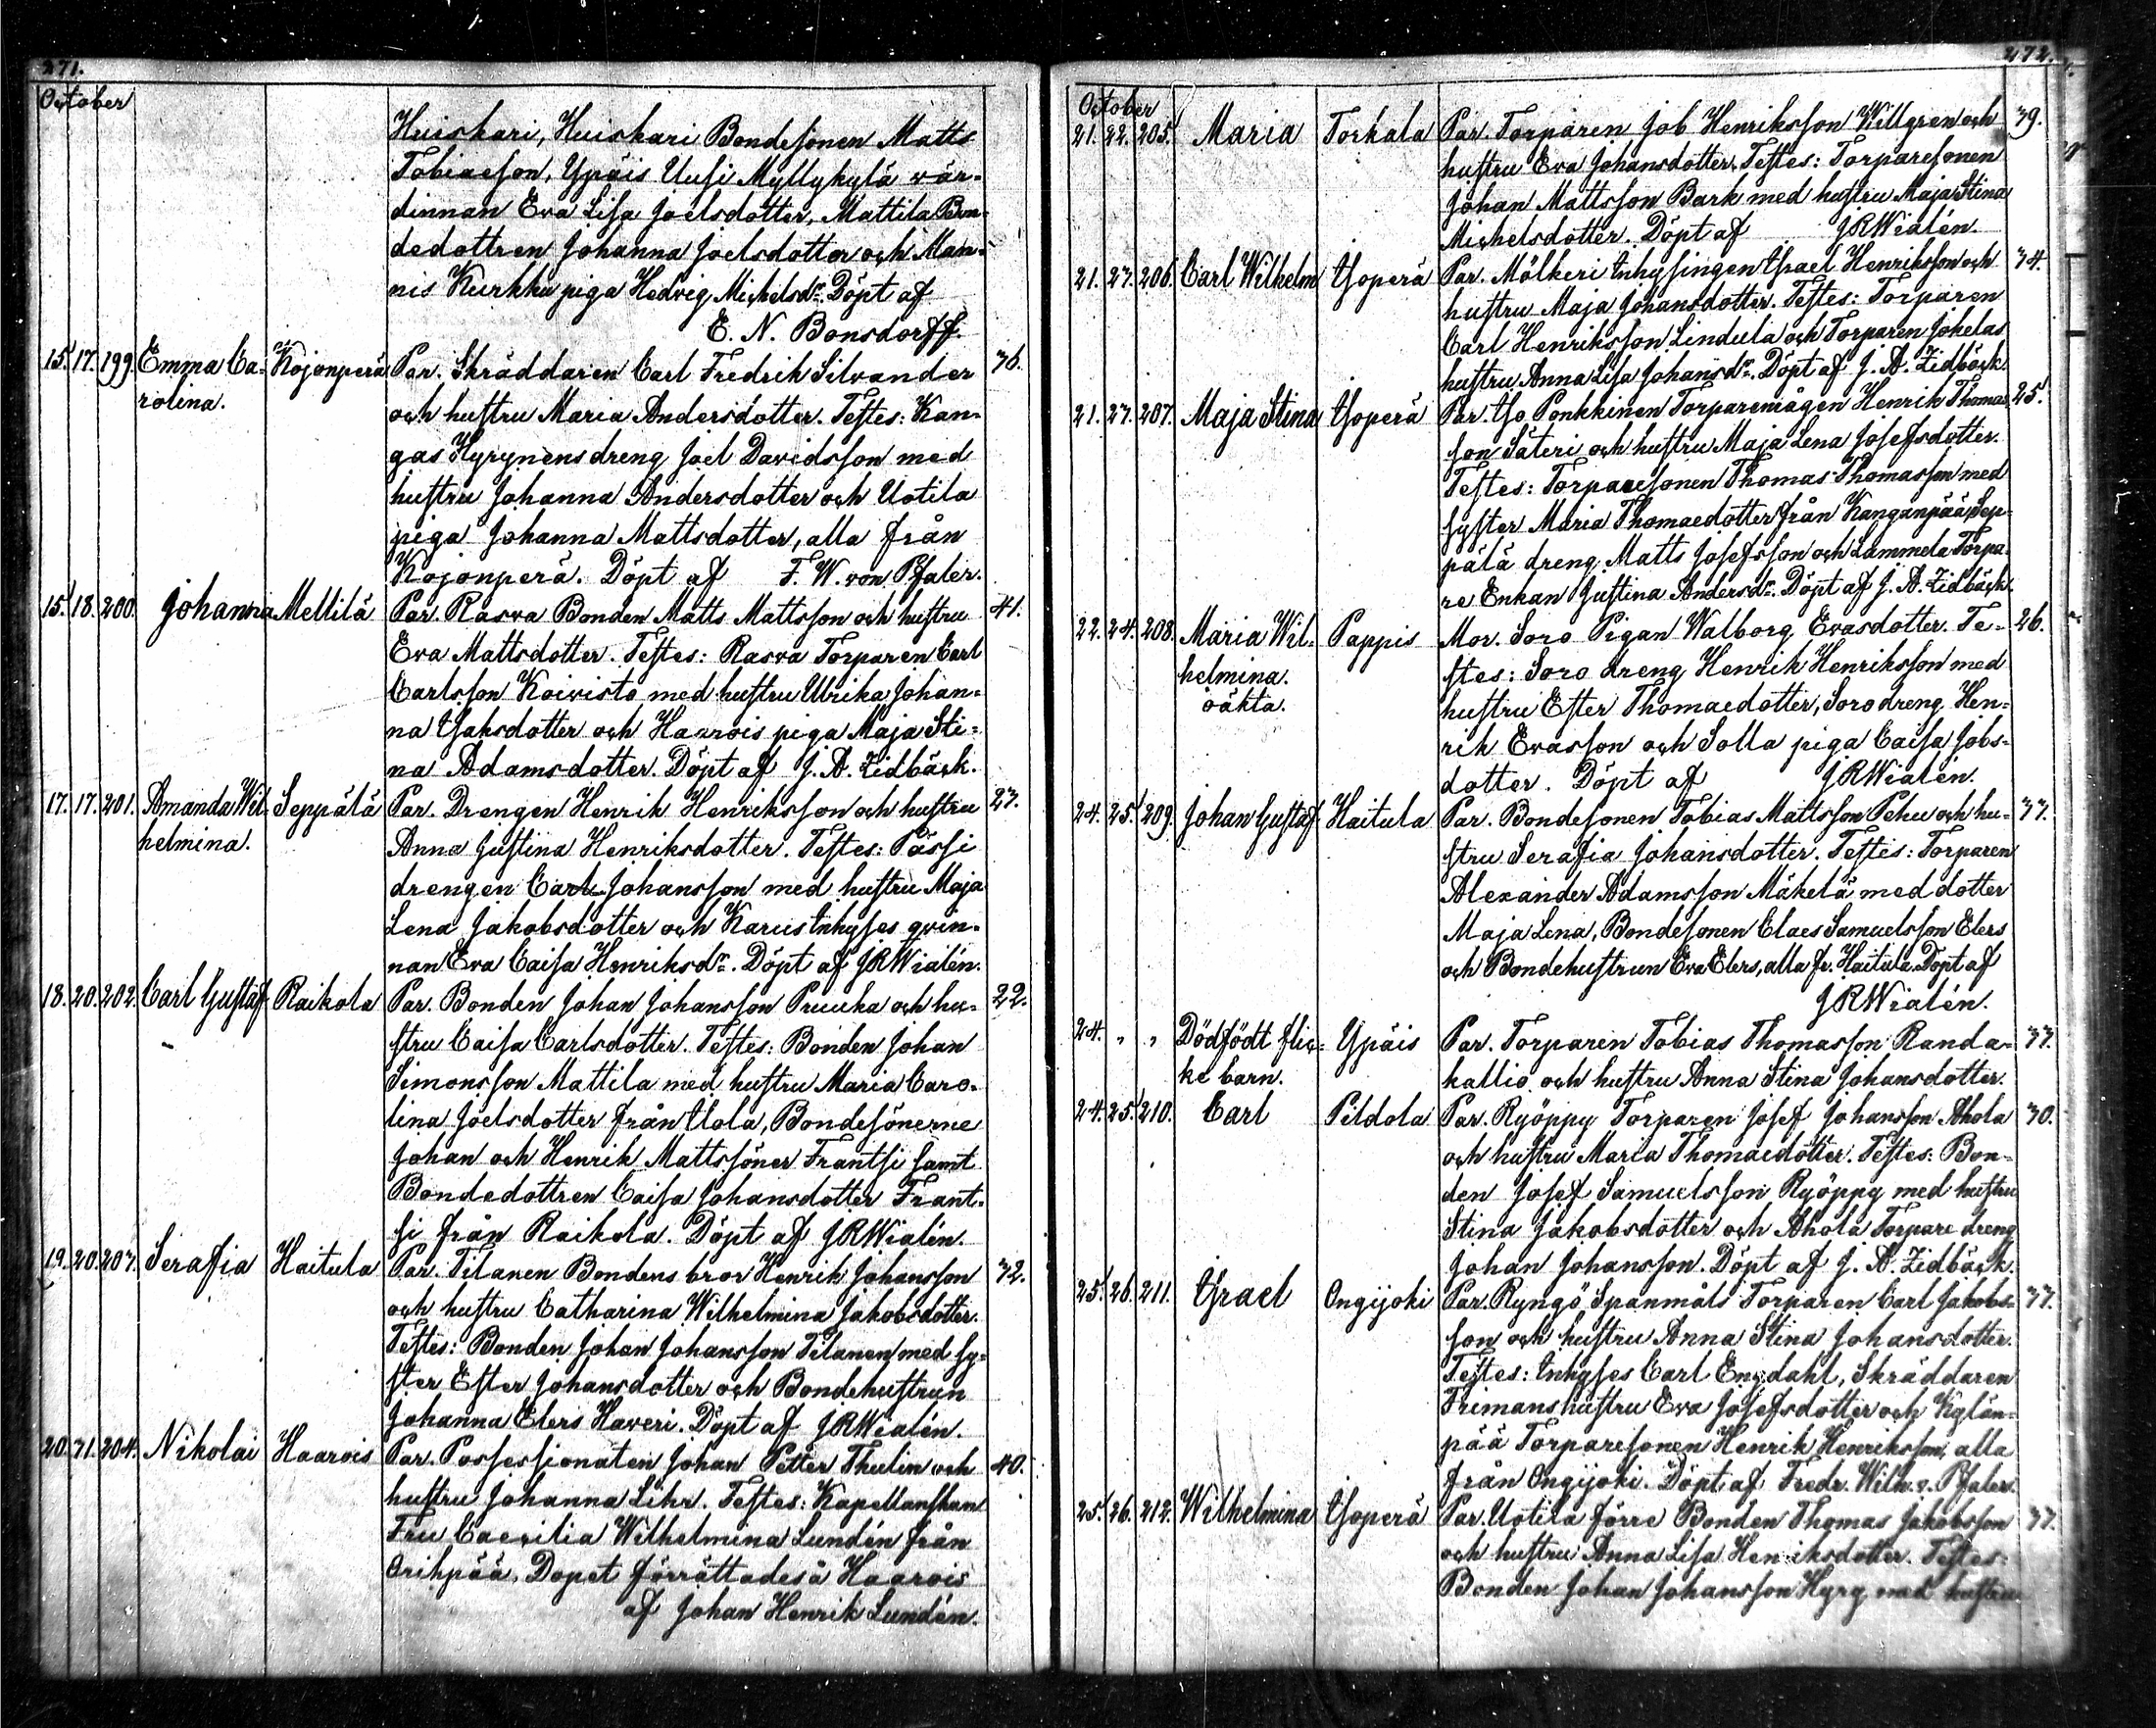 271.
October
Huiskari, Huiskari Bondesonen Matts
Tobiaeson, Ypäis Uusi Myllykylä vär-
dinnan Eva Lisa Joelsdotter, Mattila Bon-
dedottren Johanna Joelsdotter och Man-
nis Kurkku piga Hedvig Michelsdr. Döpt af
E. N. Bonsdorff.
15. 17. 199. Emma Ca- Kojonperä Par. Skräddaren Carl Fredrik Silvander 36.
rolina. och hustru Maria Andersdotter. Testes: Kan-
gas Hyrynens dreng Joel Davidsson med
hustru Johanna Andersdotter och Uotila
piga Johanna Mattsdotter, alla från
Kojonperä. Döpt af F. W. von Pfaler.
15. 18. 200. Johanna Mellilä Par. Rasva Bonden Matts Mattsson och hustru 41.
Eva Mattsdotter. Testes: Rasva Torparen Carl
Carlsson Koivisto med hustru Ulrika Johan-
na Isaksdotter och Haarois piga Maja Sti-
na Adamsdotter. Döpt af J. A. Zidbäck.
17. 17. 201. Amanda Wil- Seppälä Par. Drengen Henrik Henriksson och hustru 23.
helmina. Anna Justina Henriksdotter. Testes: Pässi
drengen Carl Johansson med hustru Maja
Lena Jakobsdotter och Karus Inhyses qvin-
nan Eva Caisa Henriksdr. Döpt af JRWialén.
18. 20. 202. Carl Gustaf Raikola Par. Bonden Johan Johansson Pruuka och hu- 22.
stru Caisa Carlsdotter. Testes: Bonden Johan
Simonsson Mattila med hustru Maria Caro-
lina Joelsdotter från Uola, Bondesönerne
Johan och Henrik Mattssöner Frantsi samt
Bondedottren Caisa Johansdotter Frant-
si från Raikola. Döpt af JRWialén.
19. 20. 203. Serafia Haitula Par. Tilanen Bondens bror Henrik Johansson 32.
och hustru Catharina Wilhelmina Jakobsdotter.
Testes: Bonden Johan Johansson Tilanen med sy-
ster Ester Johansdotter och Bondehustrun
Johanna Elers Haveri. Döpt af JRWialén.
20. 31. 204. Nikolai Haarois Par. Possessionaten Johan Petter Thulin och 40.
hustru Johanna Lihr. Testes: Kapellanskan
Fru Caecilia Wilhelmina Lundén från
Orihpää. Dopet förrättades å Haarois
af Johan Henrik Lundén.
272.
October
21. 22. 205. Maria Torkala Par. Torparen Job Henriksson Willgren och 39.
hustru Eva Johansdotter. Testes: Torparesonen
Johan Mattsson Bark med hustru Maja Stina
Michelsdotter. Döpt af JRWialén.
21. 27. 206. Carl Wilhelm Isoperä Par. Mölkeri Inhysingen Israel Henriksson och 34.
hustru Maja Johansdotter. Testes: Torparen
Carl Henriksson Lindula och Torparen Johelas
hustru Anna Lisa Johansdr. Döpt af J. A. Zidbäck.
21. 27. 207. Maja Stina Isoperä Par. Iso Ponkkinen Torparemågen Henrik Thomas- 25.
son Säteri och hustru Maja Lena Josefsdotter.
Testes: Torparesonen Thomas Thomasson med
syster Maria Thomaedotter från Kanganpää, Sep-
pälä dreng Matts Josefsson och Lammela Torpa-
re Enkan Justina Andersdr. Döpt af J. A. Zidbäck.
22. 24. 208. Maria Wil- Pappis Mor. Soro Pigan Walborg Evasdotter. Te- 26.
helmina. stes: Soro dreng Henrik Henriksson med
oäkta. hustru Ester Thomaedotter, Soro dreng Hen-
rik Evasson och Solla piga Caisa Jobs-
dotter. Döpt af JRWialén.
24. 25. 209. Johan Gustaf Haitula Par. Bondesonen Tobias Mattsson Pehu och hu- 33.
stru Serafia Johansdotter. Testes: Torparen
Alexander Adamsson Mäkelä med dotter
Maja Lena, Bondesonen Claes Samuelsson Elers
och Bondehustrun Eva Elers, alla fr. Haitula. Döpt af
JRWialén.
24. " " Dödfödt flic- Ypäis Par. Torparen Tobias Thomasson Randa- 33.
ke barn. kallio och hustru Anna Stina Johansdotter.
24. 25. 210. Carl Pildola Par. Ryöppy Torparen Josef Johansson Ahola 30.
och hustru Maria Thomaedotter. Testes: Bon-
den Josef Samuelsson Ryöppy med hustru
Stina Jakobsdotter och Ahola Torpare dreng
Johan Johansson. Döpt af J. A. Zidbäck.
25. 26. 211. Israel Ongijoki Par. Ryngö Spanmåls Torparen Carl Jakobs- 33.
son och hustru Anna Stina Johansdotter.
Testes: Inhyses Carl Engdahl, Skräddaren
Frimans hustru Eva Josefsdotter och Kylän-
pää Torparesonen Henrik Henriksson, alla
från Ongijoki. Döpt af Fredr. Wilh. v. Pfaler.
25. 26. 212. Wilhelmina Isoperä Par. Uotila förre Bonden Thomas Jakobsson 33.
och hustru Anna Lisa Henriksdotter. Testes:
Bonden Johan Johansson Hyry med hustru